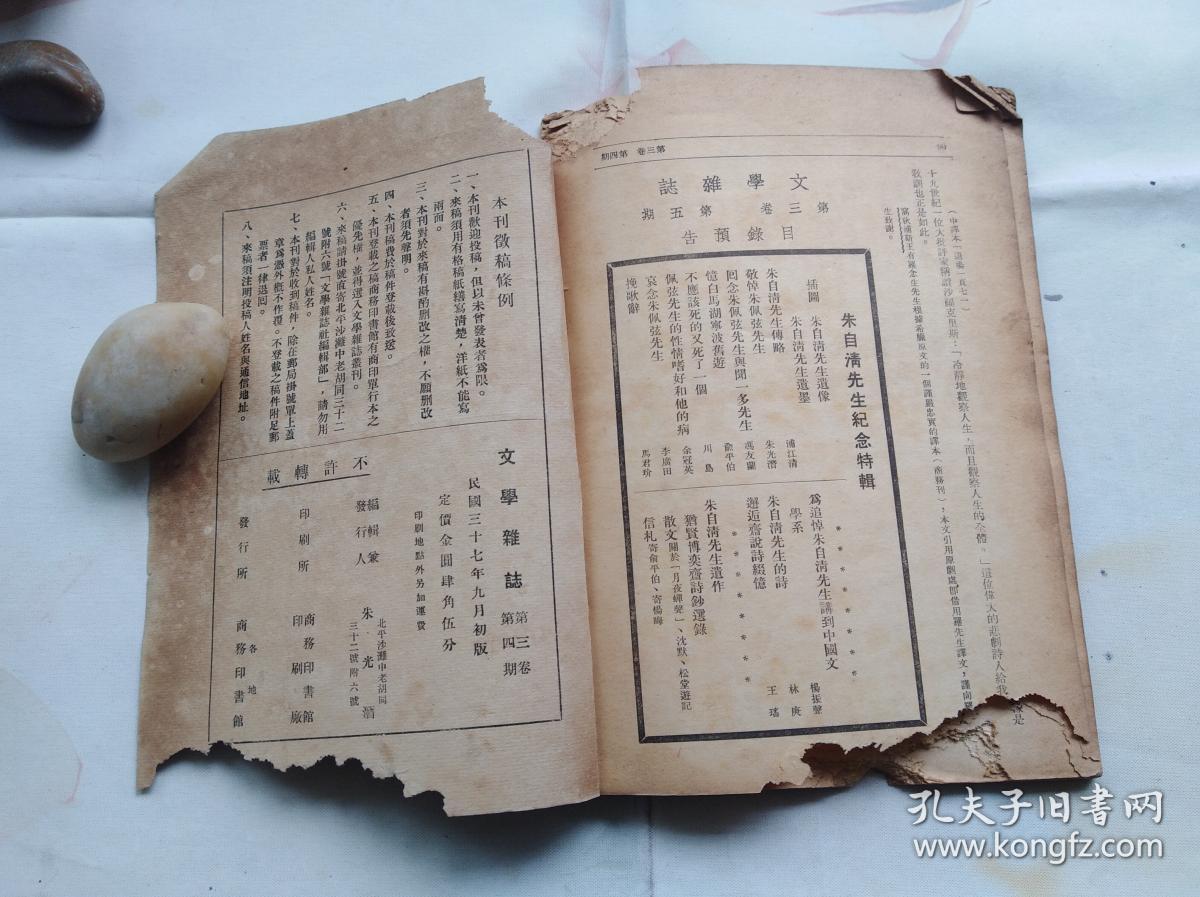 第三卷 第四期
(中譯本「遺集」頁七一)
十九世紀一位大批評家稱讚沙福克里斯:「冷靜地觀察人生,而且觀察人生的全體。」這位偉大的悲劇詩人給我
教訓也正是如此。
生致謝。
文學雜誌
第三卷 第五期
目錄預告
朱自清先生紀念特輯
插圖 朱自清先生遺像
朱自清先生遺墨
朱自清先生傳略 浦江清
敬悼朱佩弦先生 朱光潛
回念朱佩弦先生與聞一多先生 馮友蘭
憶白馬湖寧波舊遊 俞平伯
不應該死的又死了一個 川島
佩弦先生的性情嗜好和他的病 余冠英
哀念朱佩弦先生 李廣田
挽歌辭 馬君玠
為追悼朱自清先生講到中國文
學系 楊振聲
朱自清先生的詩 林庚
邂逅齋說詩綴憶 王瑤
朱自清先生遺作
猶賢博奕齋詩鈔選錄
散文關於「月夜蟬聲」、沈默、松堂遊記
信札寄俞平伯、寄楊晦
本刊徵稿條例
一、本刊歡迎投稿,但以未曾發表者爲限。
二、來稿須用有格稿紙繕寫清楚,洋紙不能寫
兩面。
三、本刊對於來稿有斟酌刪改之權,不願刪改
者須先聲明。
四、本刊稿費於稿件登載後致送。
五、本刊登載之稿商務印書館有商印單行本之
優先權,並得選入文學雜誌叢刊。
六、來稿請掛號直寄北平沙灘中老胡同三十二
號附六號「文學雜誌社編輯部」,請勿用
編輯人私人姓名。
七、本刊對於收到稿件,除在郵局掛號單上蓋
章爲憑外概不作覆。不登載之稿件附足郵
票者一律退囘。
八、來稿須注明投稿人姓名與通信地址。
文學雜誌 第三卷 第四期
民國三十七年九月初版
定價金圓肆角伍分
印刷地點外另加運費
不許轉載
編輯兼發行人 朱光潛
北平沙灘中老胡同
三十二號附六號
印刷所 商務印書館印刷廠
發行所 各地商務印書館
孔夫子旧书网
www.kongfz.com